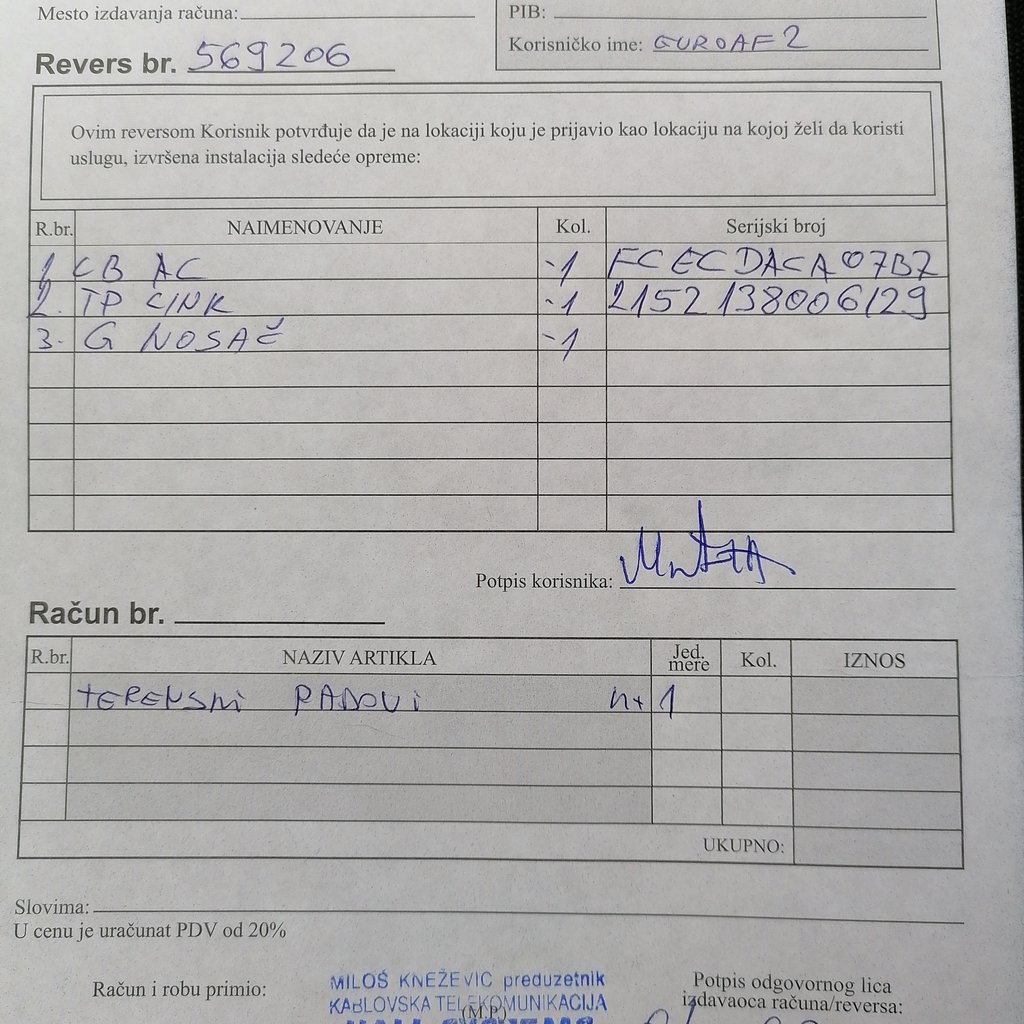 Mesto izdavanja računa:
PIB:
Korisničko ime: GUROAF2
Revers br. 569206
Ovim reversom Korisnik potvrđuje da je na lokaciji koju je prijavio kao lokaciju na kojoj želi da koristi
uslugu, izvršena instalacija sledeće opreme:
R.br. NAIMENOVANJE Kol. Serijski broj
1 CB AC -1 FCECDACA07B7
2. TP LINK -1 2152138006129
3. G NOSAČ -1
Potpis korisnika:
Račun br.
R.br. NAZIV ARTIKLA Jed. mere Kol. IZNOS
TERENSKI RADOVI 1
UKUPNO:
Slovima:
U cenu je uračunat PDV od 20%
Račun i robu primio:
MILOŠ KNEŽEVIĆ preduzetnik
KABLOVSKA TELEKOMUNIKACIJA
(M.P.)
Potpis odgovornog lica
izdavaoca računa/reversa: